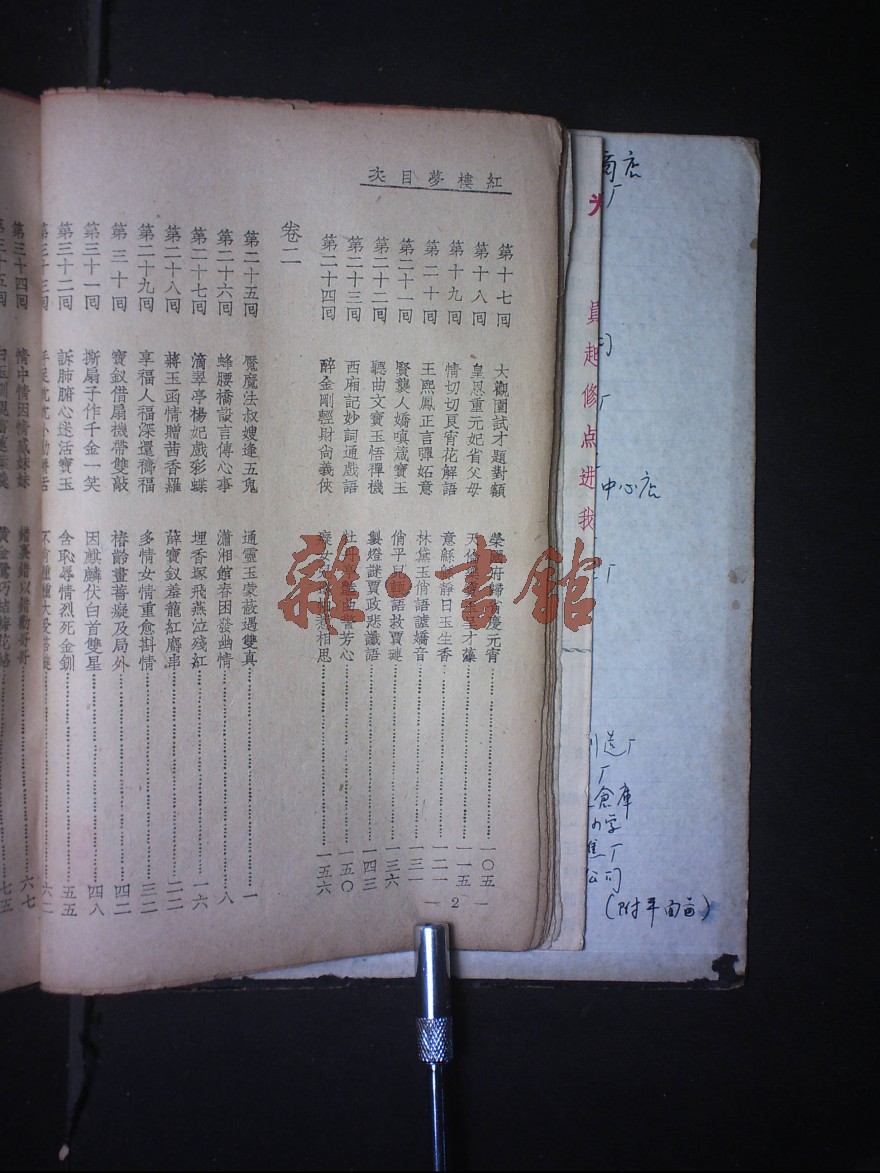 紅樓夢目次
第十七回 大觀園試才題對額 榮國府歸省慶元宵 一〇五
第十八回 皇恩重元妃省父母 天倫 呈才藻 一一五
第十九回 情切切良宵花解語 意綿 靜日玉生香 一二一
第二十回 王熙鳳正言彈妬意 林黛玉俏語謔嬌音 一三一
第二十一回 賢襲人嬌嗔箴寶玉 俏平兒 語救賈璉 一三六
第二十二回 聽曲文寶玉悟禪機 製燈謎賈政悲讖語 一四三
第二十三回 西廂記妙詞通戲語 牡丹 曲警芳心 一五〇
第二十四回 醉金剛輕財尙義俠 癡女 相思 一五六
卷二
第二十五回 魘魔法叔嫂逢五鬼 通靈玉蒙蔽遇雙真 一
第二十六回 蜂腰橋設言傳心事 瀟湘館春困發幽情 八
第二十七回 滴翠亭楊妃戲彩蝶 埋香塚飛燕泣殘紅 一六
第二十八回 蔣玉函情贈茜香羅 薛寶釵羞籠紅麝串 二二
第二十九回 享福人福深還禱福 多情女情重愈斟情 三二
第三十回 寶釵借扇機帶雙敲 椿齡畫薔癡及局外 四二
第三十一回 撕扇子作千金一笑 因麒麟伏白首雙星 四八
第三十二回 訴肺腑心迷活寶玉 含恥辱情烈死金釧 五五
第三十三回 六二
第三十四回 情中情因情感妹妹 錯裏錯以錯勸哥哥 六七
第三十五回 七五
— 2 —
起修点进我
商店
厂
中心店
厂
造厂
厂
倉庫
小学
厂
公司
(附平面畐)
雜·書館